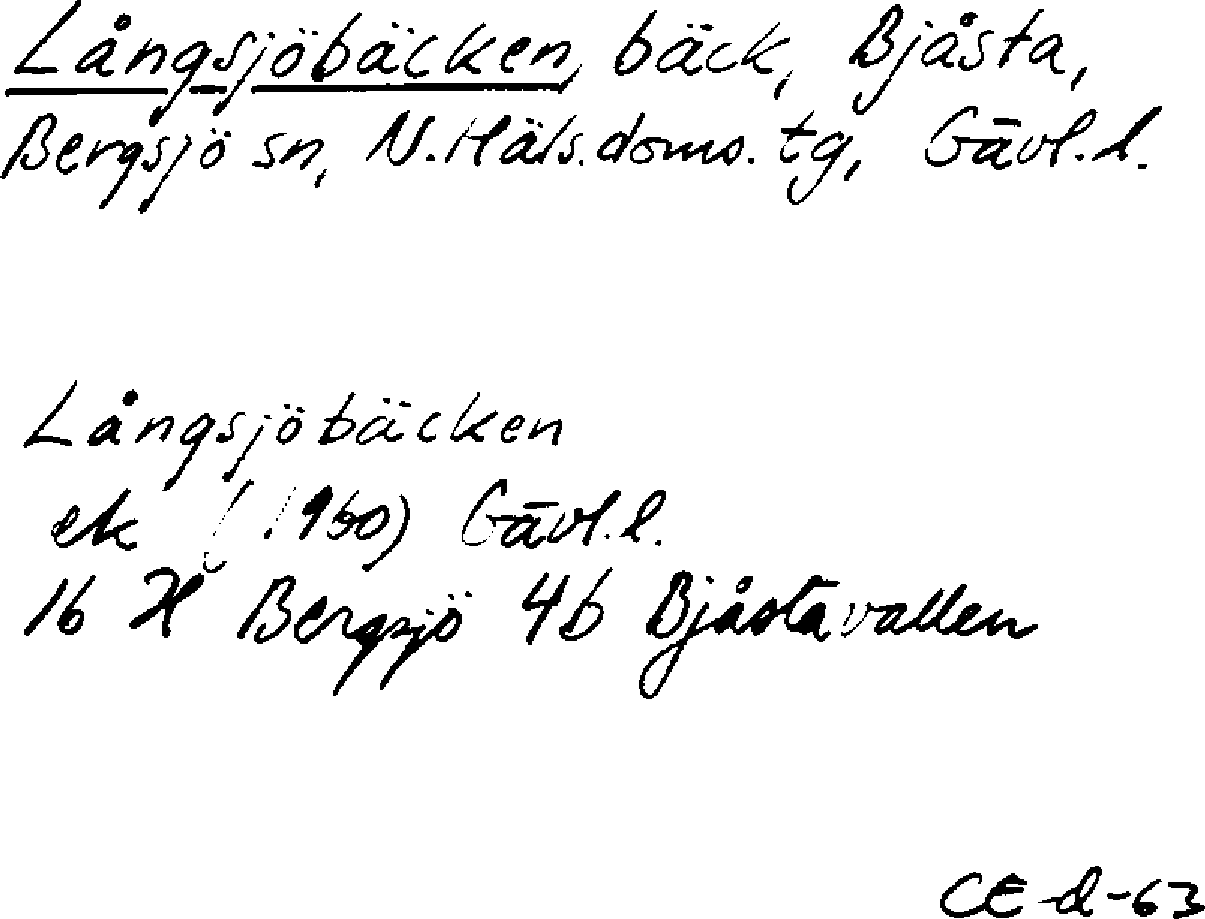 Långsjöbäcken, bäck, Bjåsta,
Bergsjö sn, N. Häls. doms. tg, Gävl. l.
Långsjöbäcken
ek (1960) Gävl. l.
16 H Bergsjö 4b Bjåstavallen
CE-d-63